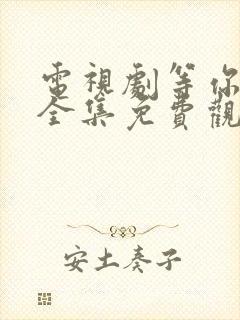 電視劇等你
全集免費觀
安土奏子